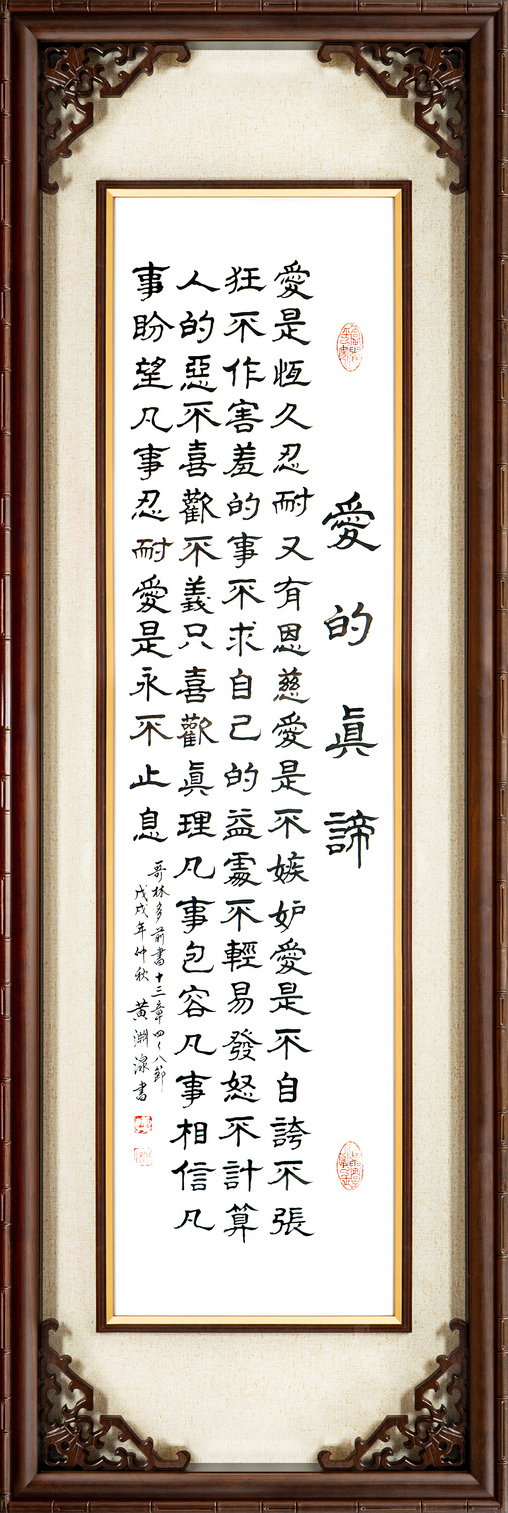 愛的真諦
愛是恆久忍耐又有恩慈愛是不嫉妒愛是不自誇不張
狂不作害羞的事不求自己的益處不輕易發怒不計算
人的惡不喜歡不義只喜歡真理凡事包容凡事相信凡
事盼望凡事忍耐愛是永不止息
哥林多前書十三章四~八節
戊戌年仲秋 黃淵濠書